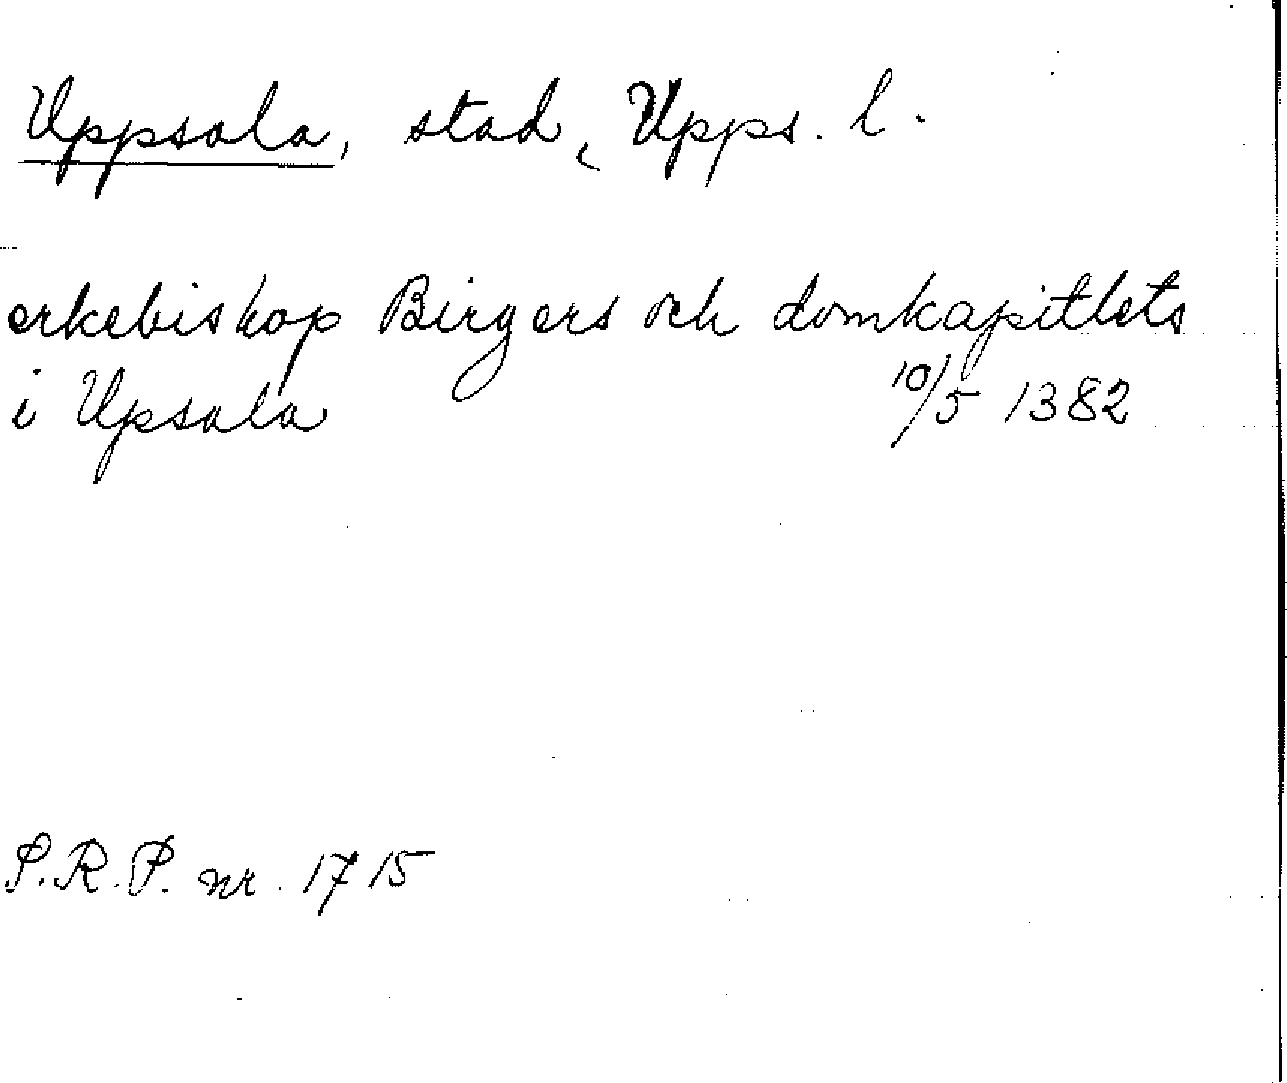 Uppsala, stad, Upps. l.
erkebiskop Birgers och domkapitlets
i Upsala 10/5 1382
S.R.P. nr. 1715